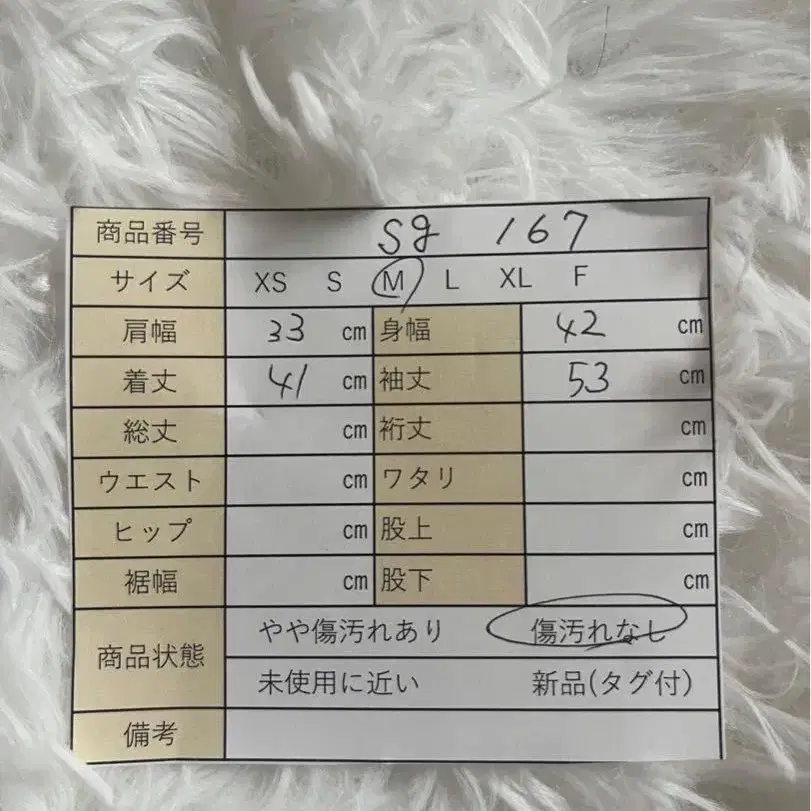 商品番号 sg 167
サイズ XS S M L XL F
肩幅 33 cm 身幅 42 cm
着丈 41 cm 袖丈 53 cm
総丈 cm 裄丈 cm
ウエスト cm ワタリ cm
ヒップ cm 股上 cm
裾幅 cm 股下 cm
商品状態 やや傷汚れあり 傷汚れなし
未使用に近い 新品(タグ付)
備考